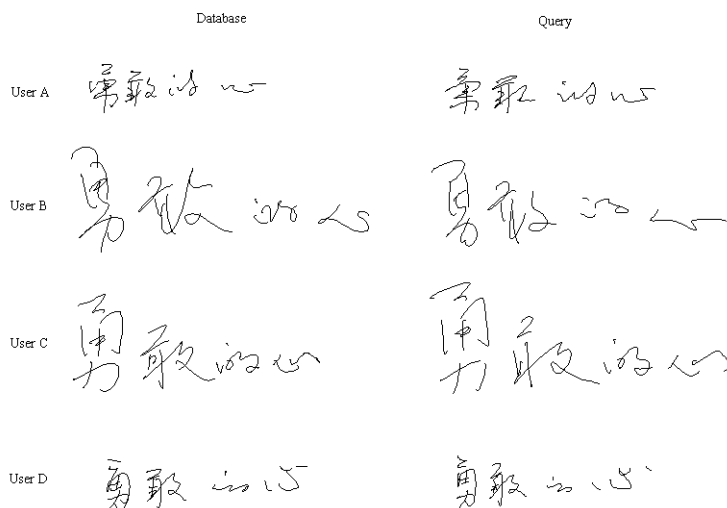 Database Query
User A 勇敢的心 勇敢的心
User B 勇敢的心 勇敢的心
User C 勇敢的心 勇敢的心
User D 勇敢的心 勇敢的心